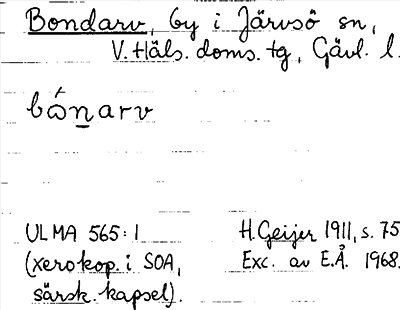 Bondarv, by i Järvsö sn,
V. Häls. doms. tg, Gävl. l.
bώn̲arv
ULMA 565:1
(xerokop. i SOA,
särsk. kapsel).
H. Geijer 1911, s. 75
Exc. av E.Å. 1968.